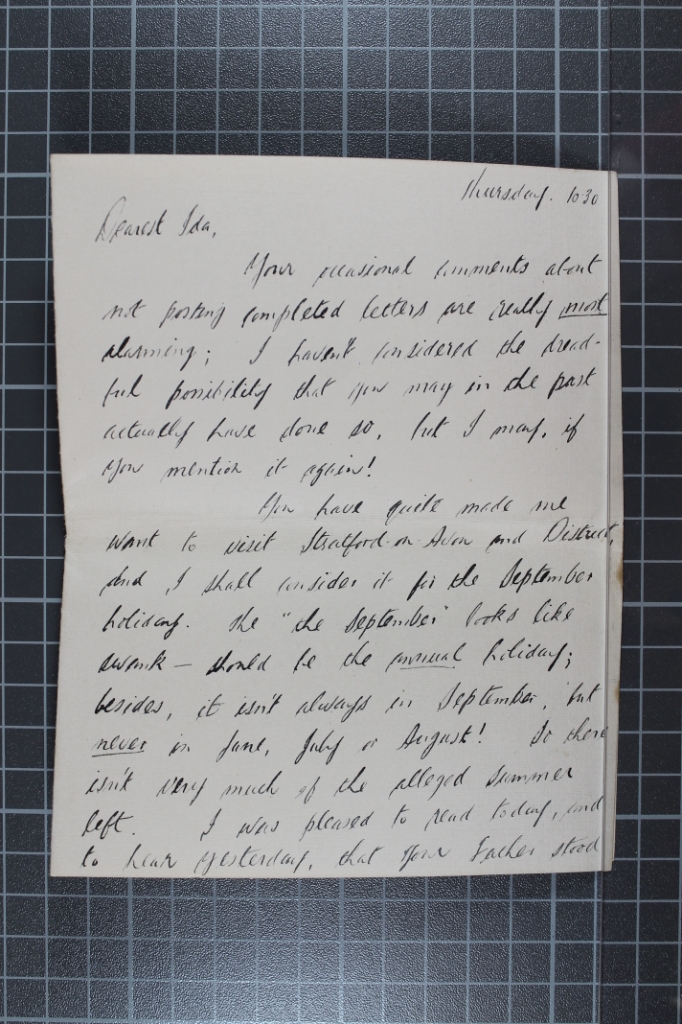 Thursday. 10 30
Dearest Ida,
Your occasional comments about
not posting completed letters are really most
alarming; I haven't considered the dread-
ful possibility that you may in the past
actually have done so, but I may, if
you mention it again!
You have quite made me
want to visit Stratford-on-Avon and District,
and I shall consider it for the September
holiday. The "the September" looks like
swank — should be the annual holiday;
besides, it isn't always in September, but
never in June, July or August! So there
isn't very much of the alleged summer
left. I was pleased to read today, and
to hear yesterday, that your Father stood